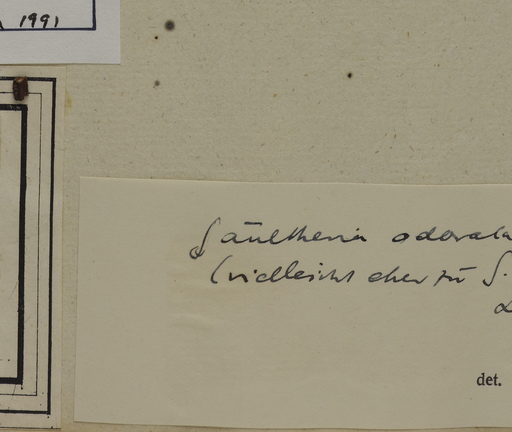 1991
Gaultheria odorata
(vielleicht eher zu G.
det.